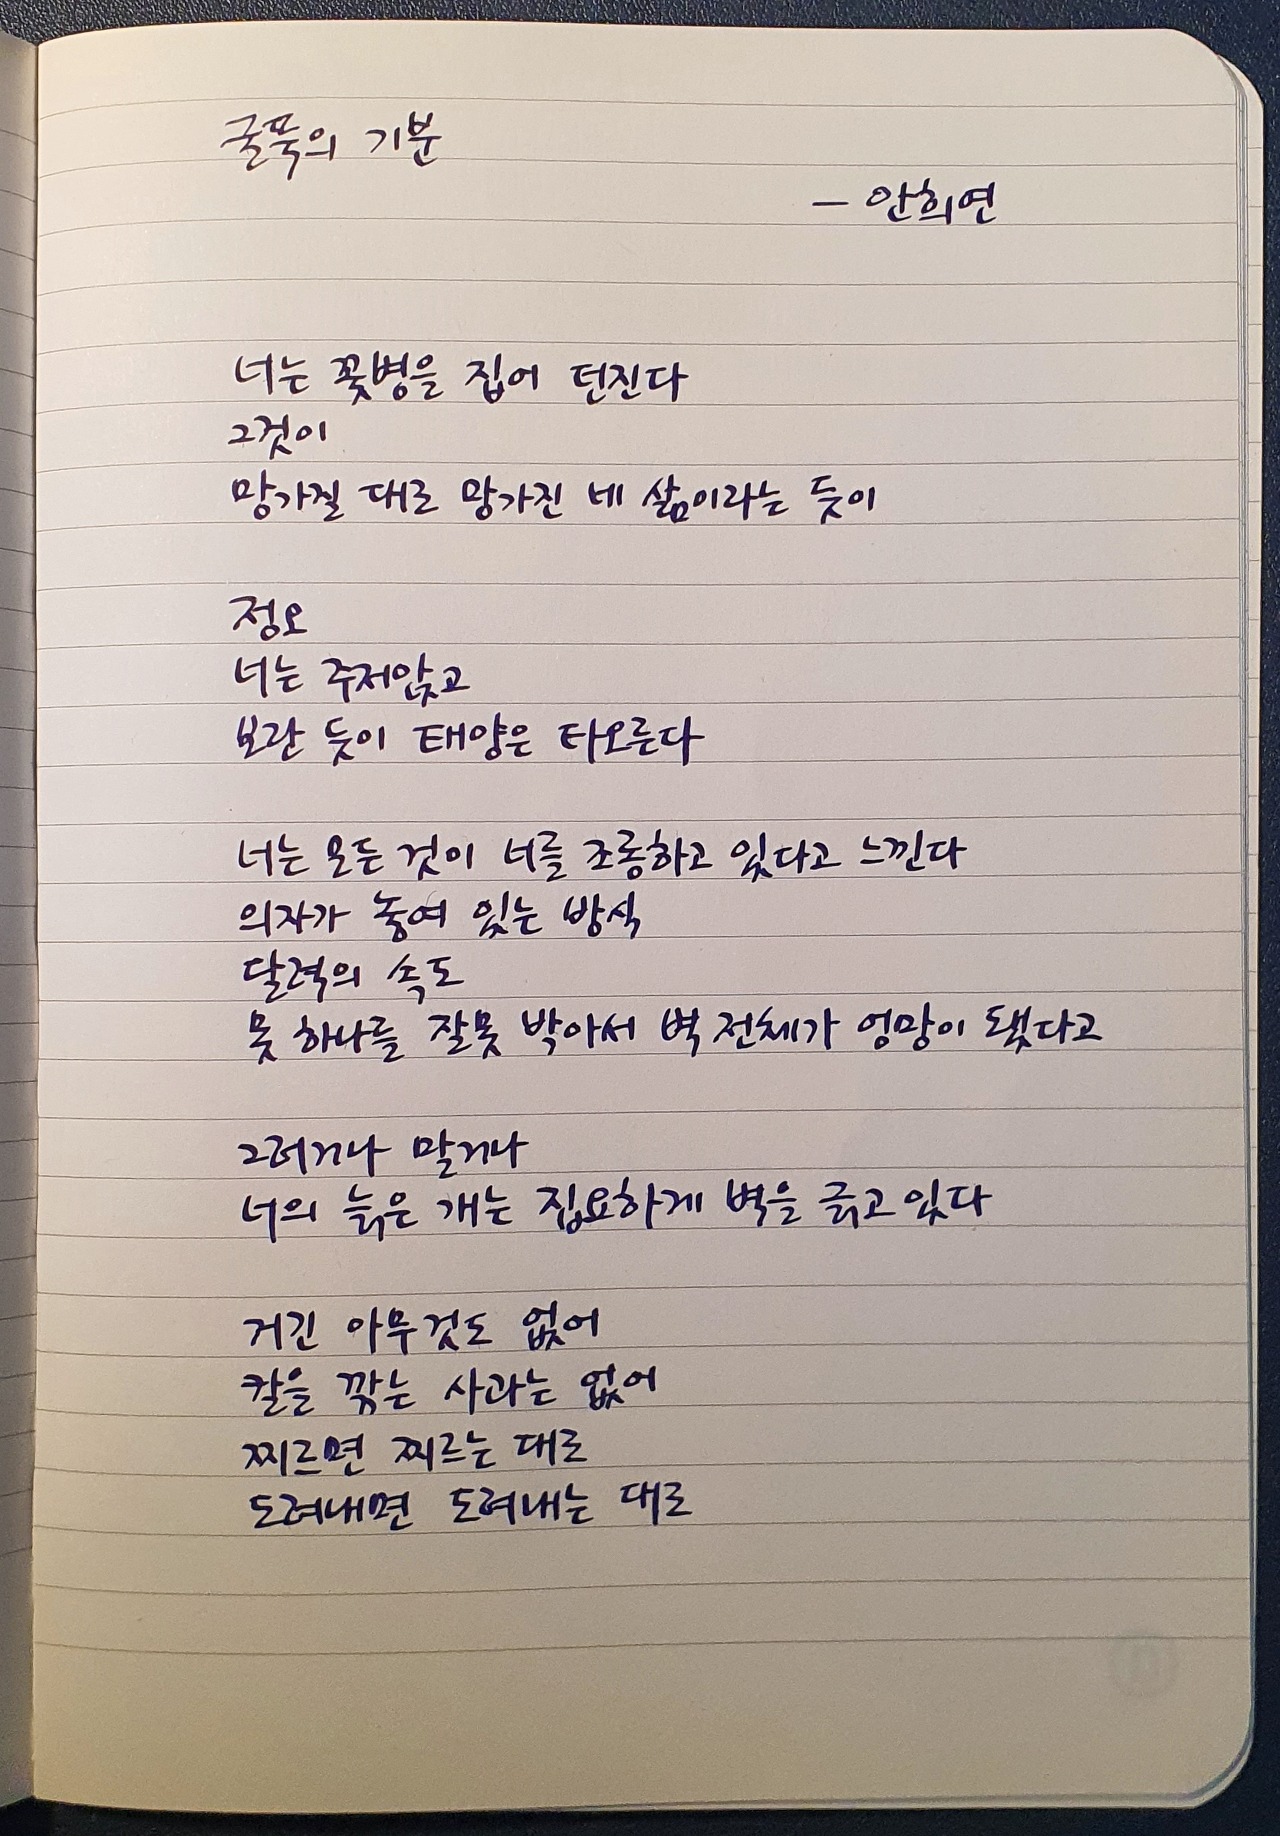 굴뚝의 기분
- 안희연
너는 꽃병을 집어 던진다
그것이
망가질 대로 망가진 네 삶이라는 듯이
정오
너는 주저앉고
보란 듯이 태양은 타오른다
너는 모든 것이 너를 조롱하고 있다고 느낀다
의자가 놓여 있는 방식
달력의 속도
못 하나를 잘못 박아서 벽 전체가 엉망이 됐다고
그러거나 말거나
너의 늙은 개는 집요하게 벽을 긁고 있다
거긴 아무것도 없어
칼을 깎는 사과는 없어
찌르면 찌르는 대로
도려내면 도려내는 대로